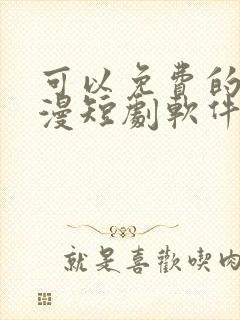 可以免費的
漫短劇軟件
就是喜歡喫肉